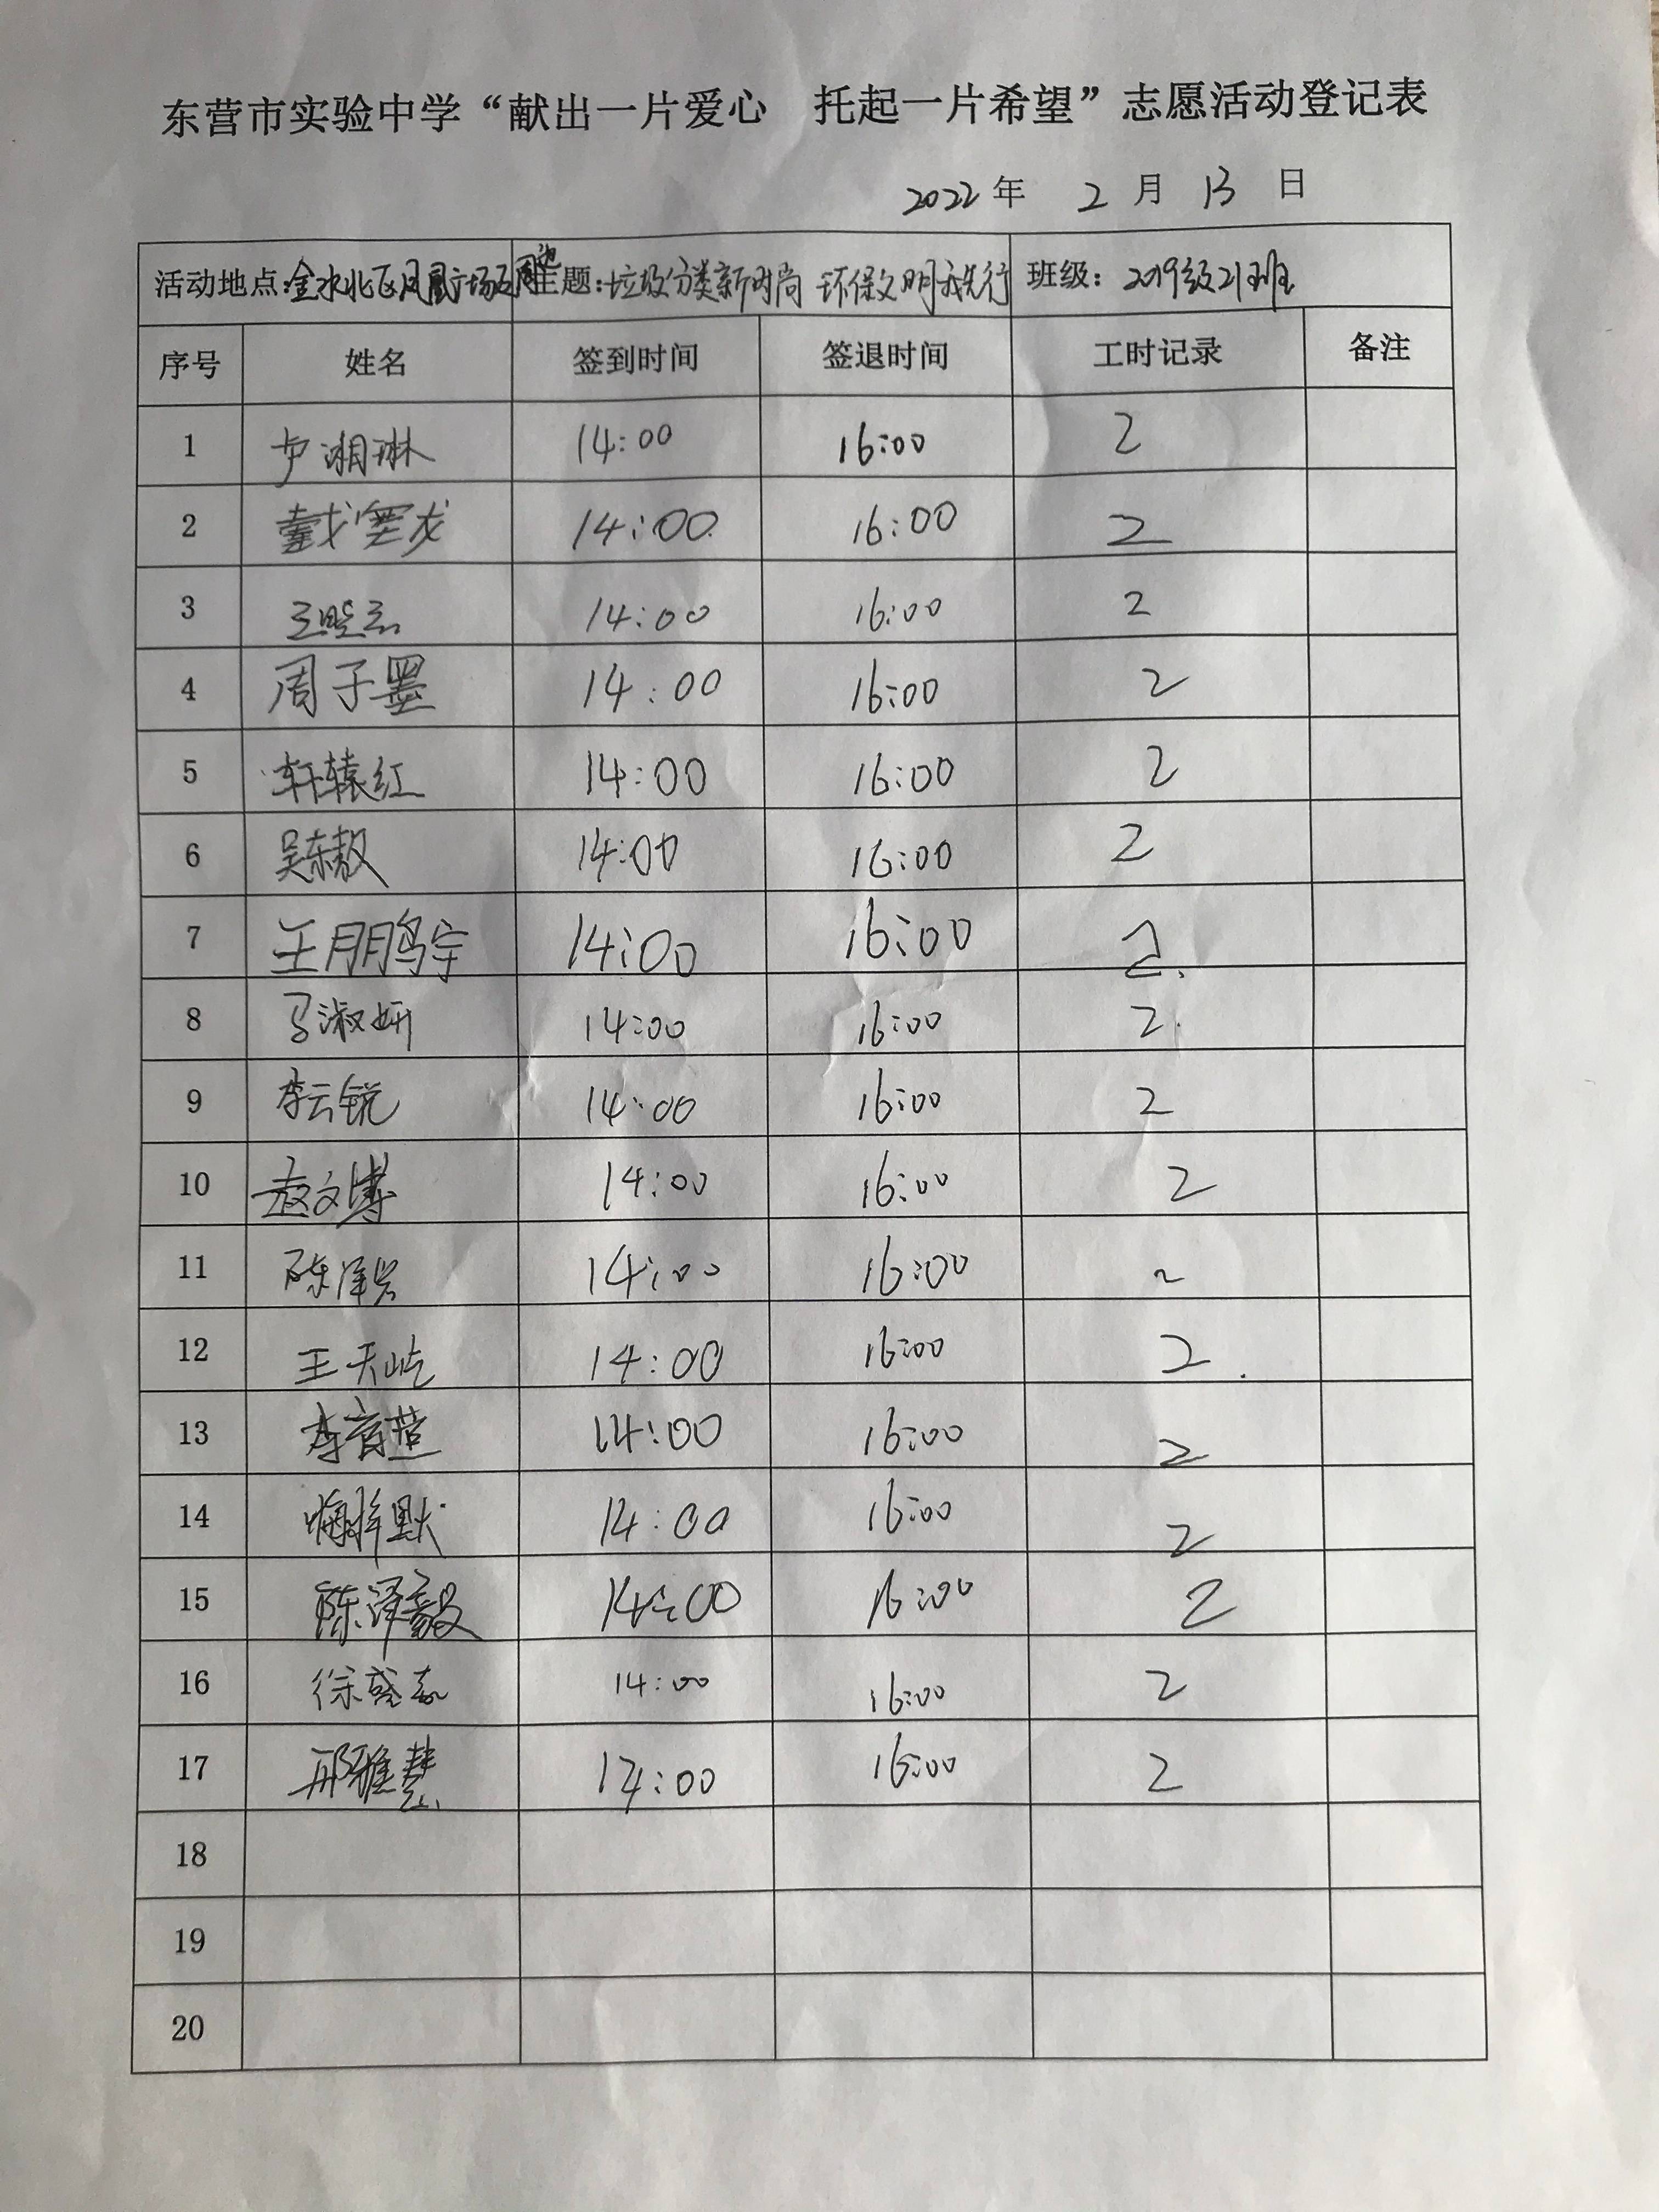 东营市实验中学“献出一片爱心 托起一片希望”志愿活动登记表
2022年 2月 13日
活动地点:金水北区凤凰广场及周边 主题:垃圾分类新时尚 环保文明我先行 班级:2019级21班
序号 姓名 签到时间 签退时间 工时记录 备注
1 卢湘琳 14:00 16:00 2
2 14:00 16:00 2
3 14:00 16:00 2
4 周子墨 14:00 16:00 2
5 轩辕红 14:00 16:00 2
6 吴东毅 14:00 16:00 2
7 王鹏宇 14:00 16:00 2
8 马淑妍 14:00 16:00 2
9 李云锐 14:00 16:00 2
10 赵文博 14:00 16:00 2
11 陈泽 14:00 16:00 2
12 王天屹 14:00 16:00 2
13 14:00 16:00 2
14 14:00 16:00 2
15 陈泽毅 14:00 16:00 2
16 徐盛 14:00 16:00 2
17 邢雅慧 14:00 16:00 2
18
19
20